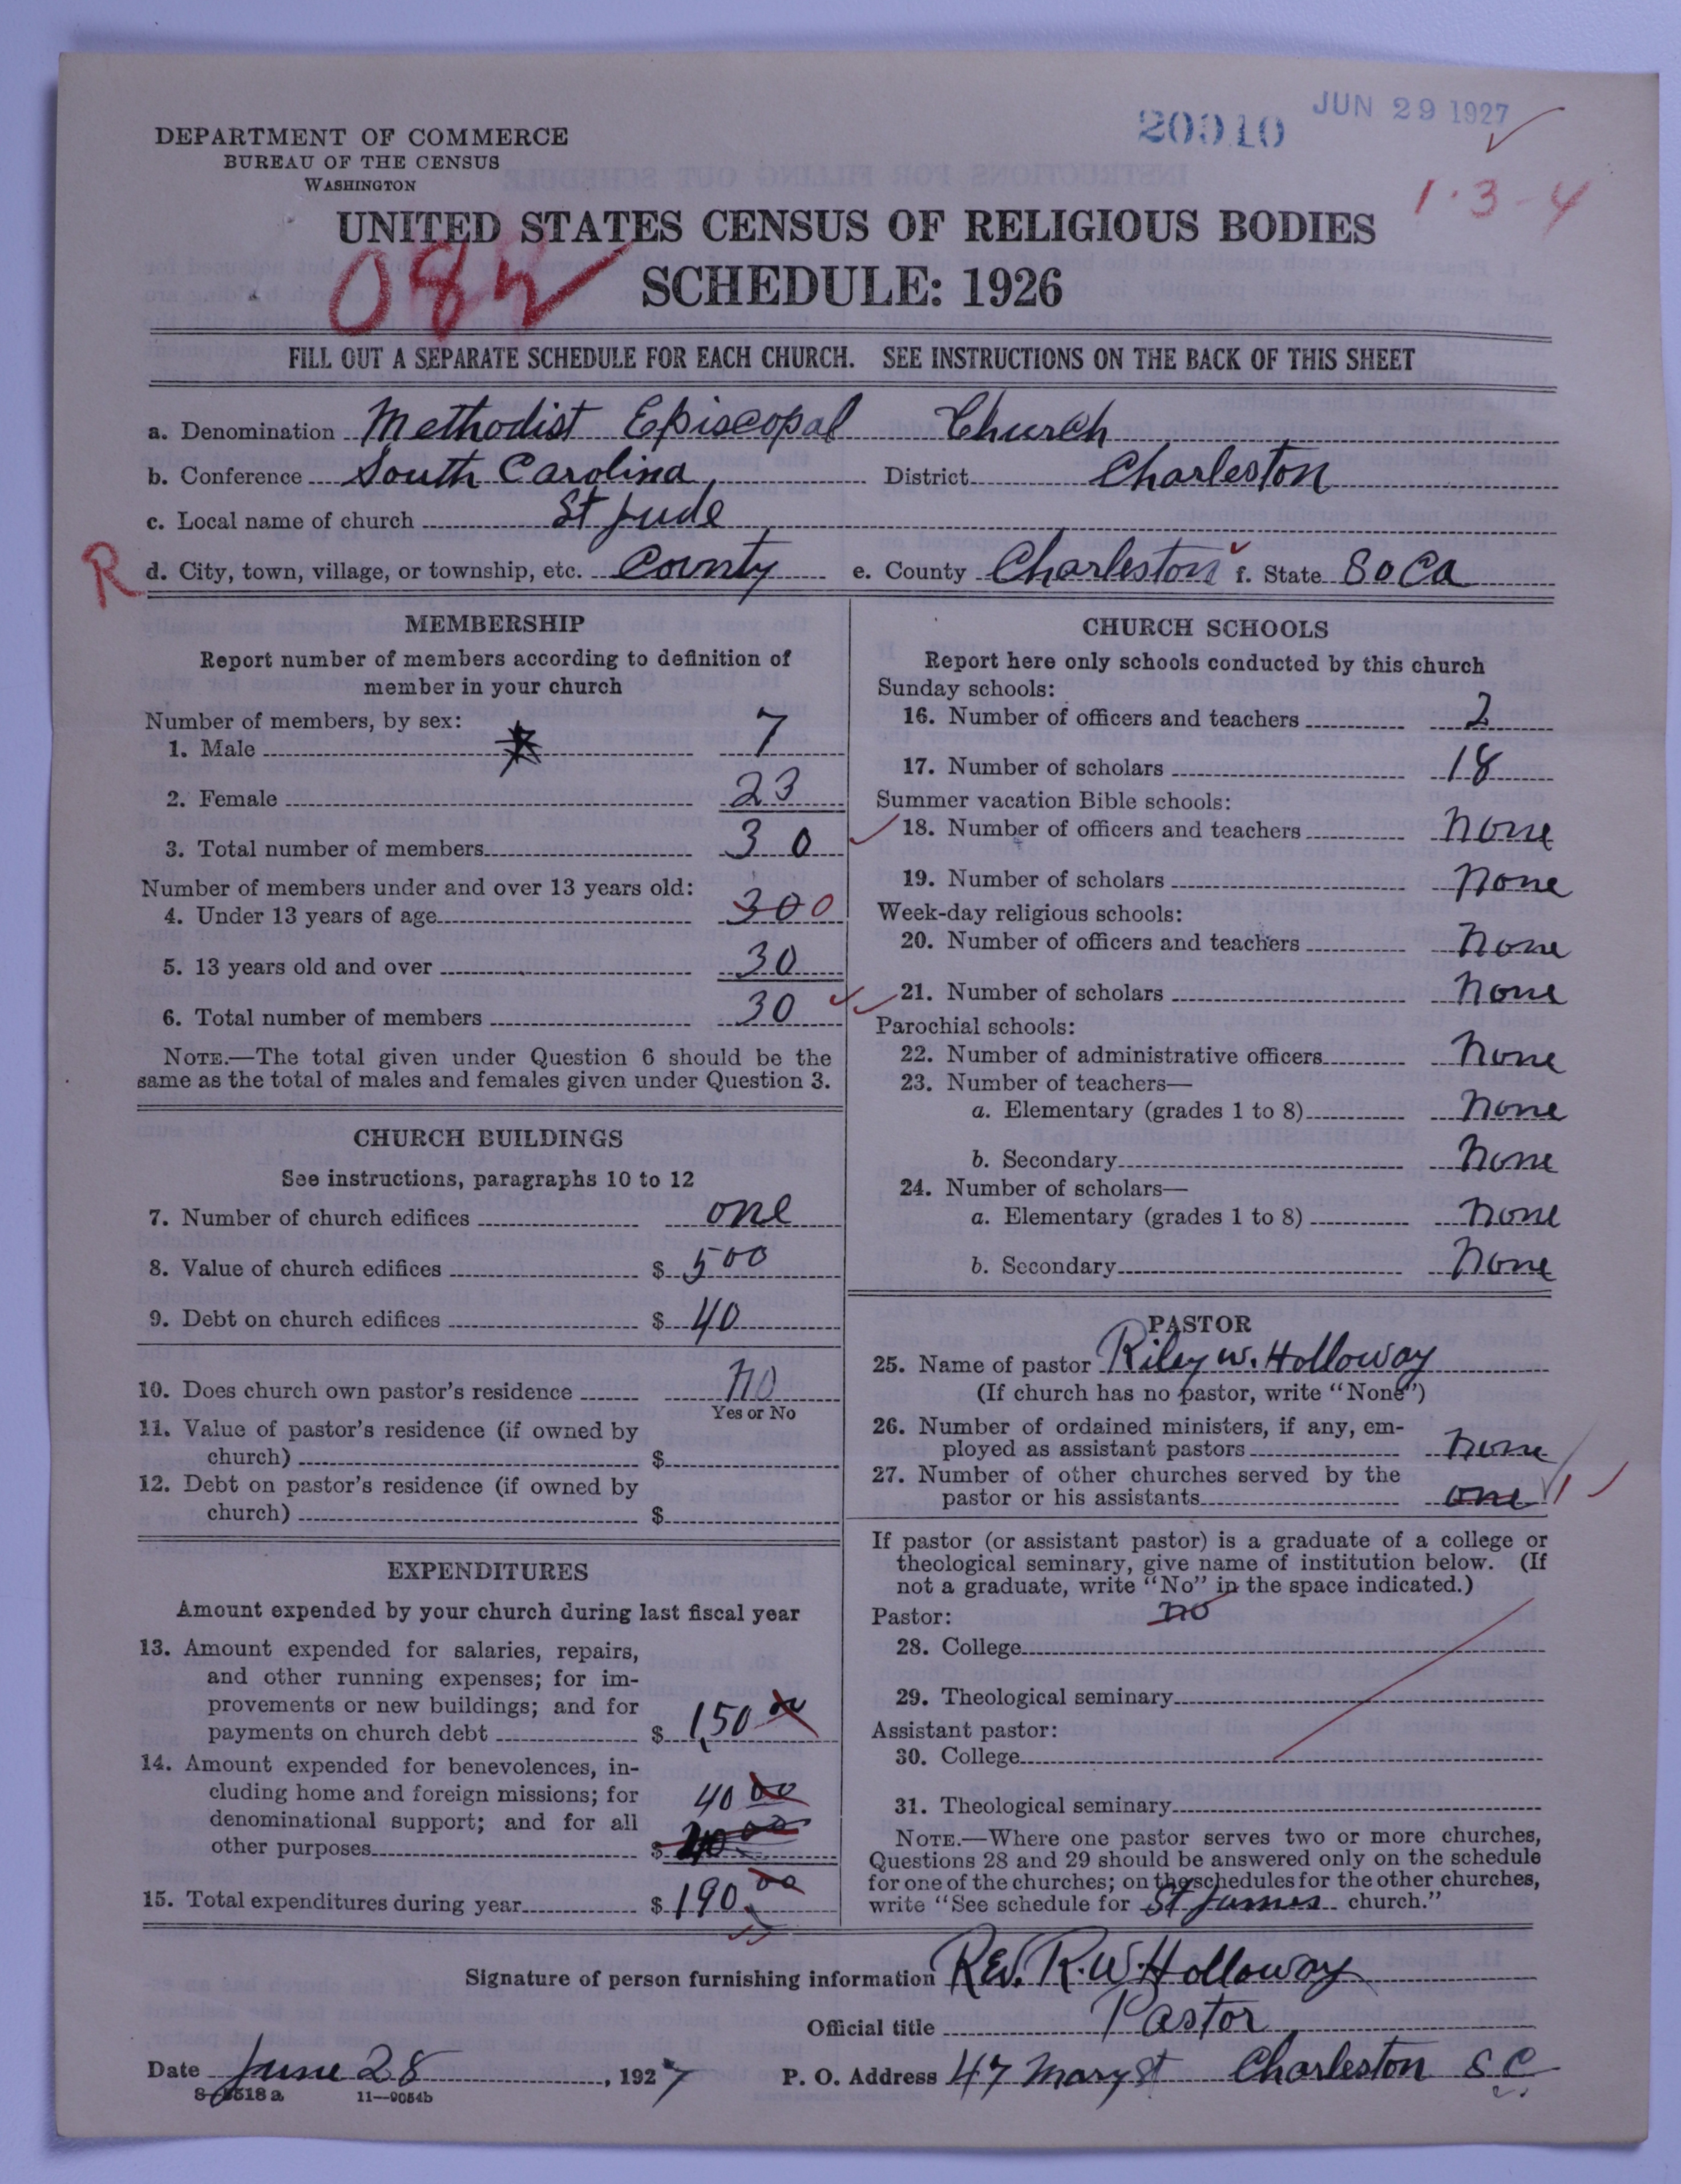 20910 JUN 29 1927
DEPARTMENT OF COMMERCE
BUREAU OF THE CENSUS
WASHINGTON
1·3-4
UNITED STATES CENSUS OF RELIGIOUS BODIES
SCHEDULE: 1926
FILL OUT A SEPARATE SCHEDULE FOR EACH CHURCH. SEE INSTRUCTIONS ON THE BACK OF THIS SHEET
a. Denomination Methodist Episcopal Church
b. Conference South Carolina District Charleston
c. Local name of church St Jude
R d. City, town, village, or township, etc. County e. County Charleston f. State So Ca
MEMBERSHIP
Report number of members according to definition of
member in your church
Number of members, by sex:
1. Male 7
2. Female 23
3. Total number of members 30
Number of members under and over 13 years old:
4. Under 13 years of age 30 0
5. 13 years old and over 30
6. Total number of members 30
NOTE.—The total given under Question 6 should be the
same as the total of males and females given under Question 3.
CHURCH BUILDINGS
See instructions, paragraphs 10 to 12
7. Number of church edifices one
8. Value of church edifices $ 500
9. Debt on church edifices $ 40
10. Does church own pastor's residence No
Yes or No
11. Value of pastor's residence (if owned by
church) $
12. Debt on pastor's residence (if owned by
church) $
EXPENDITURES
Amount expended by your church during last fiscal year
13. Amount expended for salaries, repairs,
and other running expenses; for im-
provements or new buildings; and for
payments on church debt $ 150 00
14. Amount expended for benevolences, in-
cluding home and foreign missions; for 40 00
denominational support; and for all
other purposes $
15. Total expenditures during year $ 190.00
CHURCH SCHOOLS
Report here only schools conducted by this church
Sunday schools:
16. Number of officers and teachers 2
17. Number of scholars 18
Summer vacation Bible schools:
18. Number of officers and teachers None
19. Number of scholars None
Week-day religious schools:
20. Number of officers and teachers None
21. Number of scholars None
Parochial schools:
22. Number of administrative officers None
23. Number of teachers—
a. Elementary (grades 1 to 8) None
b. Secondary None
24. Number of scholars—
a. Elementary (grades 1 to 8) None
b. Secondary None
PASTOR
25. Name of pastor Riley W. Holloway
(If church has no pastor, write "None")
26. Number of ordained ministers, if any, em-
ployed as assistant pastors None
27. Number of other churches served by the
pastor or his assistants one 1
If pastor (or assistant pastor) is a graduate of a college or
theological seminary, give name of institution below. (If
not a graduate, write "No" in the space indicated.)
Pastor: no
28. College
29. Theological seminary
Assistant pastor:
30. College
31. Theological seminary
NOTE.—Where one pastor serves two or more churches,
Questions 28 and 29 should be answered only on the schedule
for one of the churches; on the schedules for the other churches,
write "See schedule for St James church."
Signature of person furnishing information Rev. R. W. Holloway
Official title Pastor
Date June 28, 1927 P. O. Address 47 Mary St Charleston S C
11—9054b